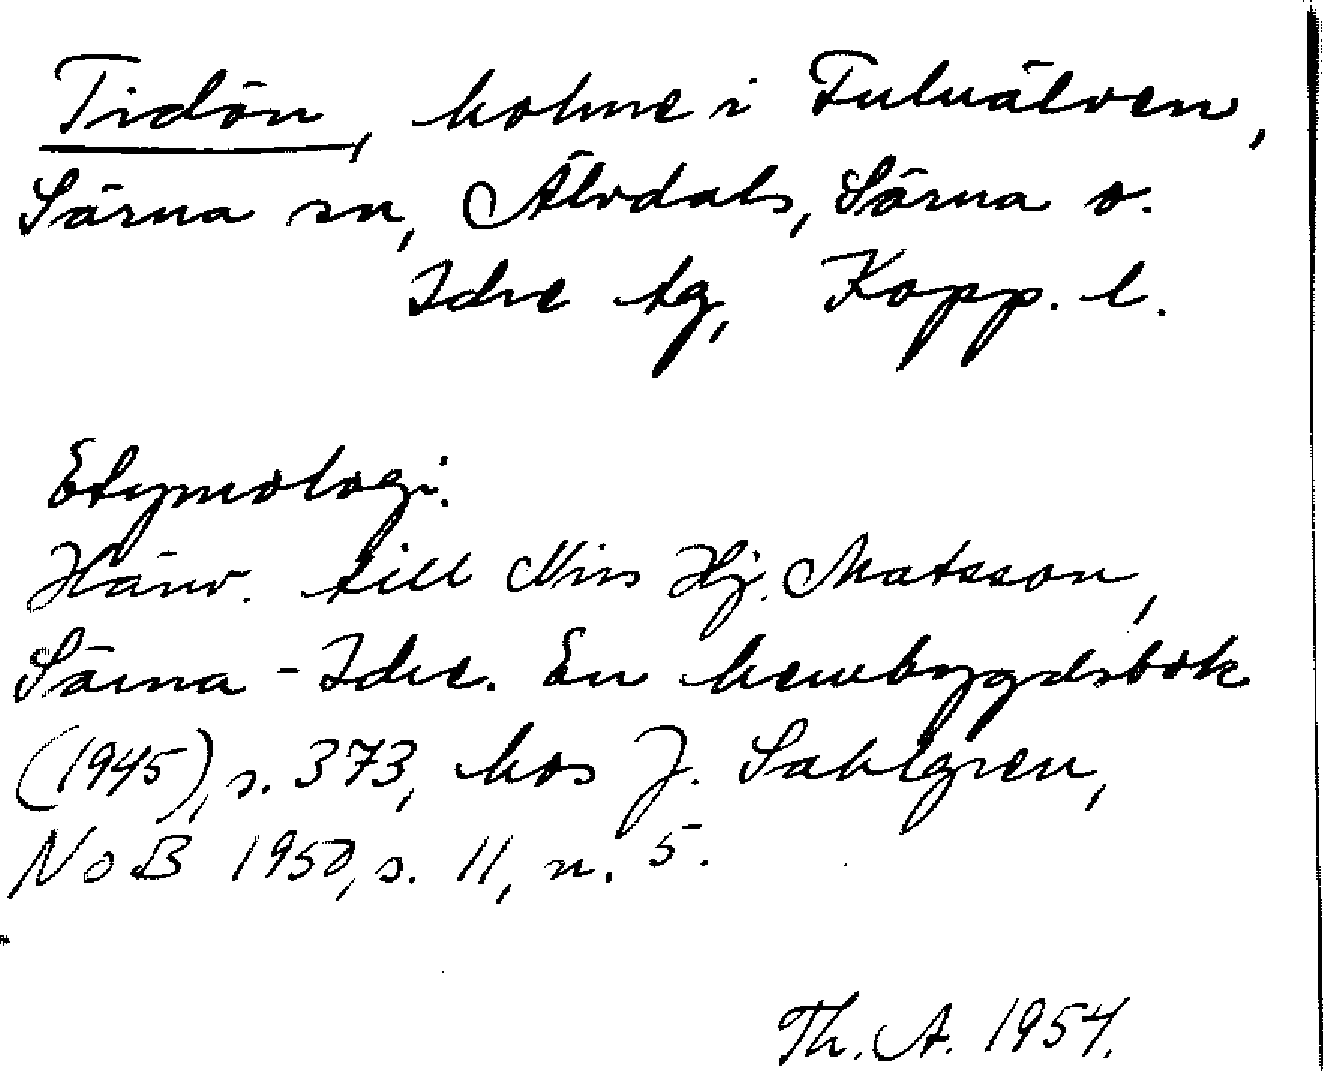 Tidön, holme i Fuluälven,
Särna sn, Älvdals, Särna o.
Idre tg, Kopp. l.
Etymologi.
Hänv. till Nils Hj. Matsson,
Särna - Idre. En hembygdsbok
(1945), s. 373, hos J. Sahlgren,
NoB 1950, s. 11, n. 5.
Th. A. 1954.